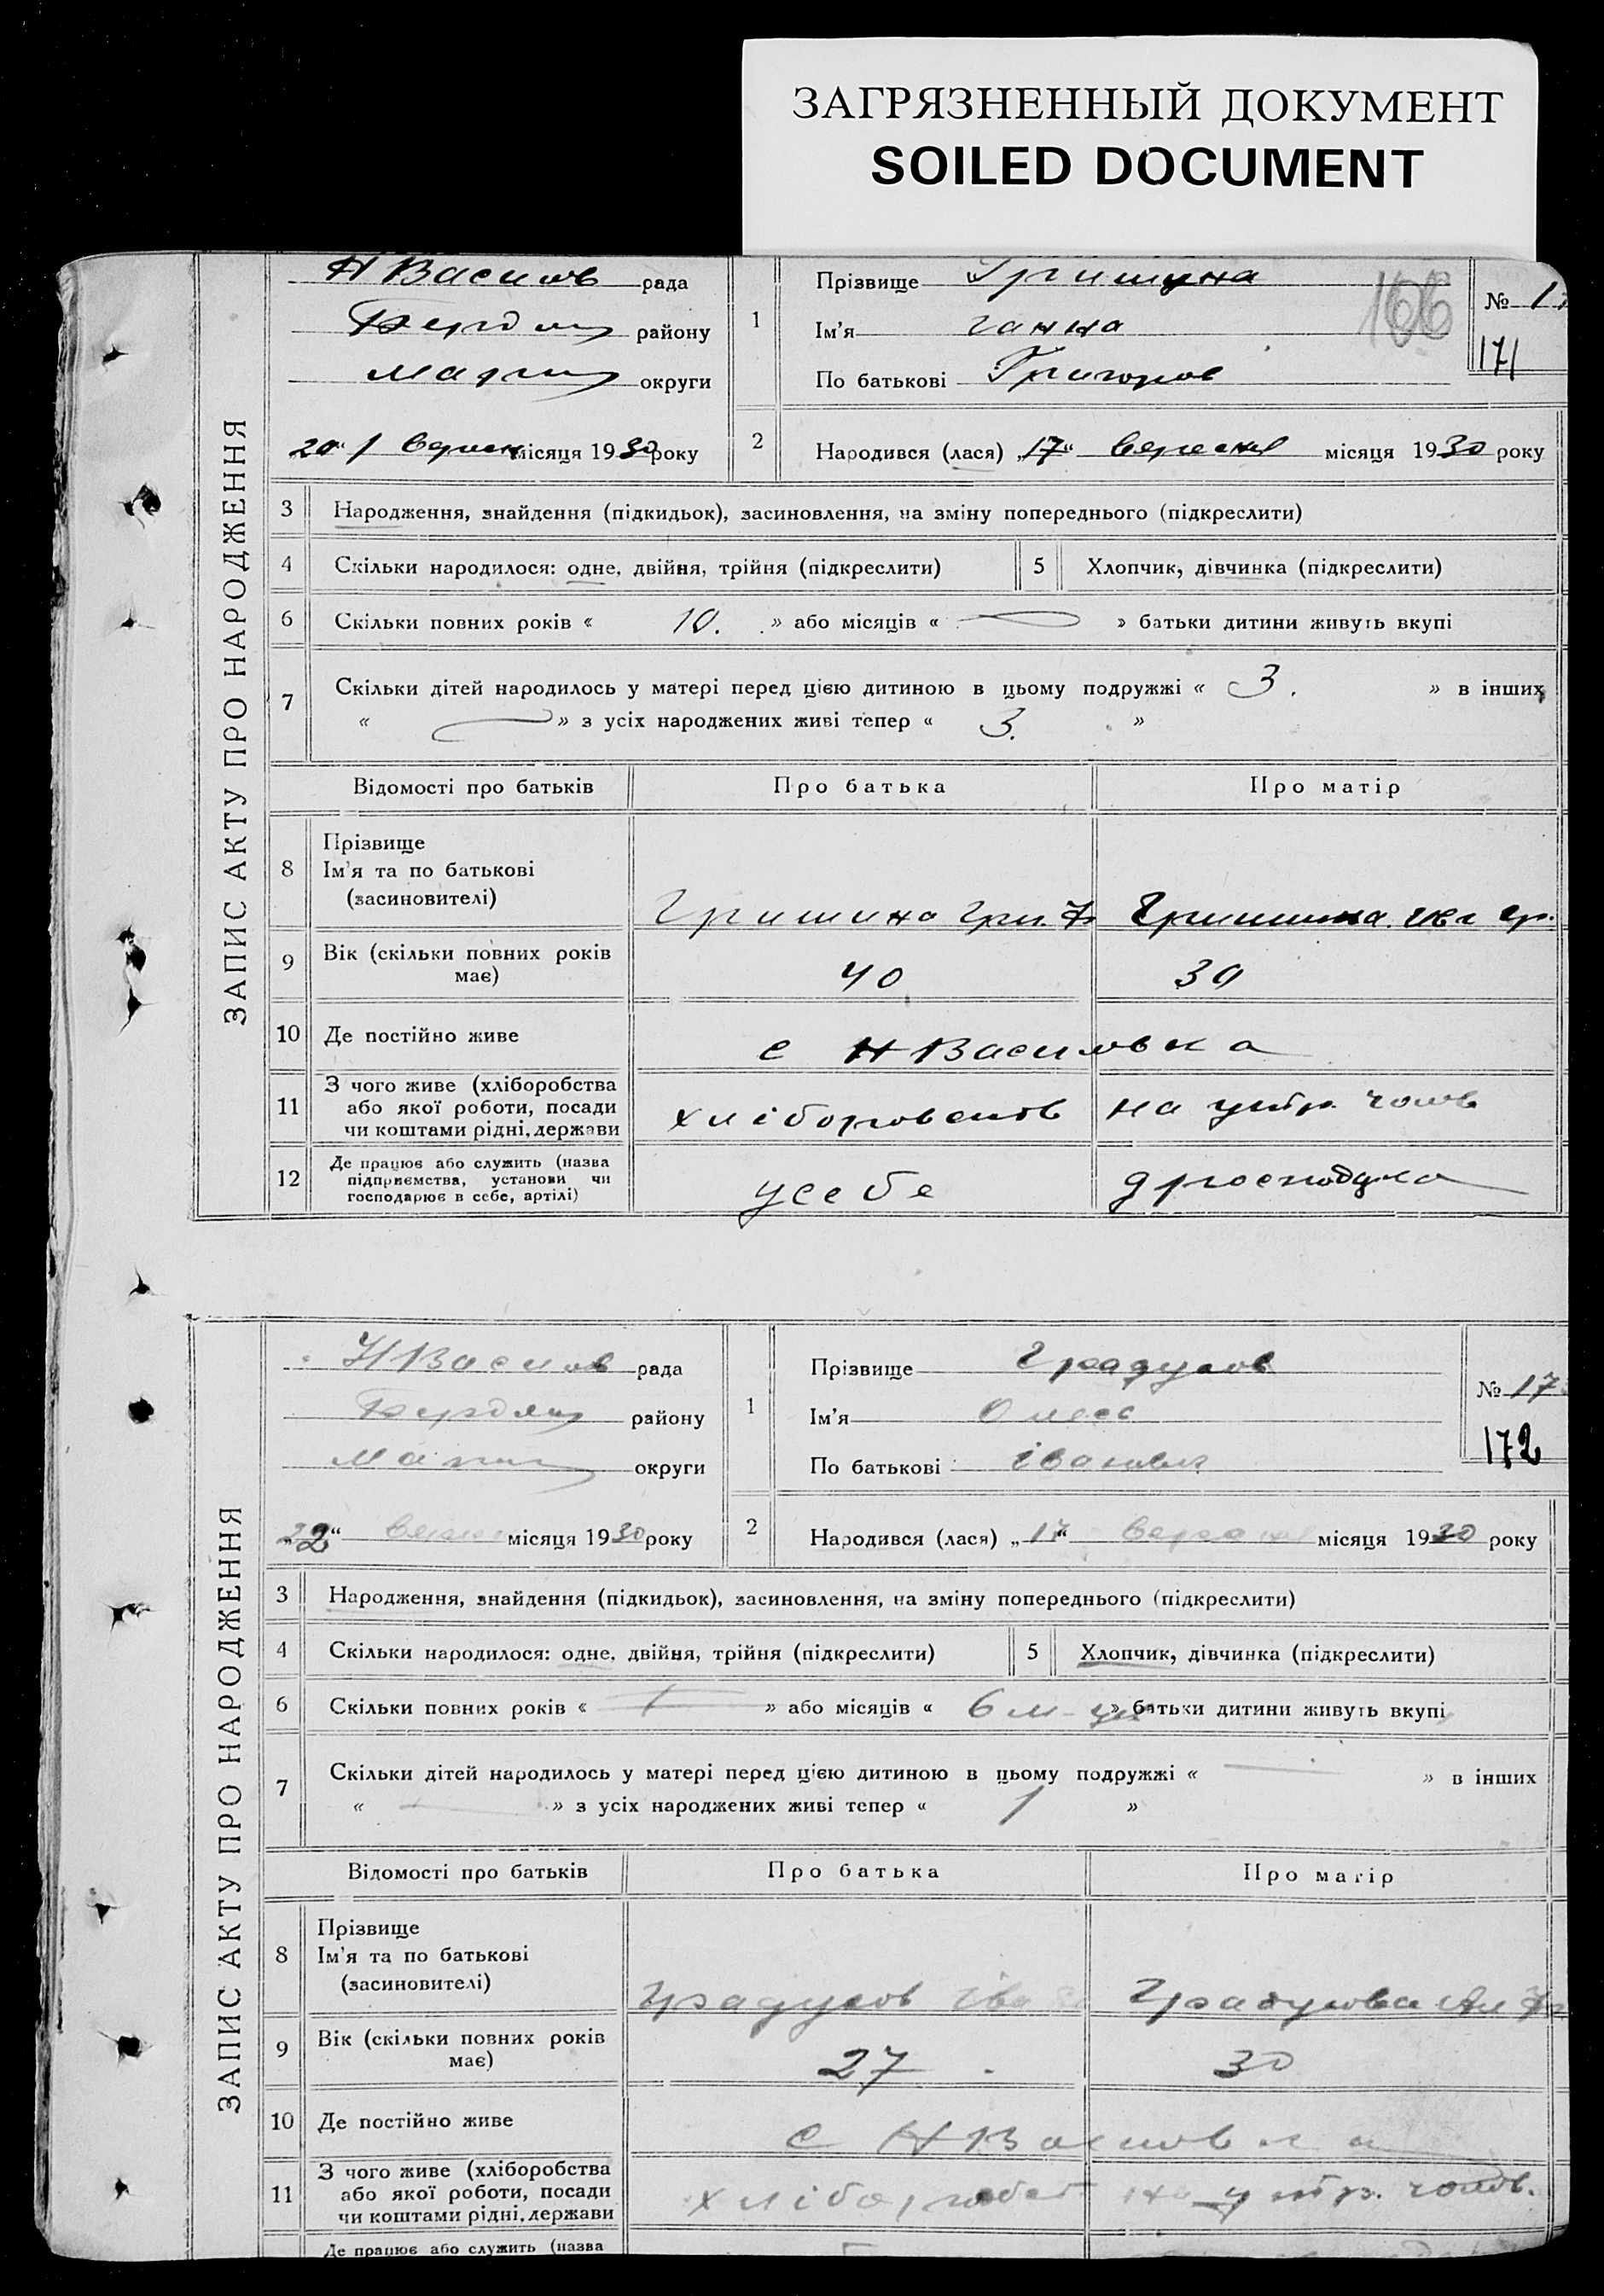 ЗАГРЯЗНЕННЫЙ ДОКУМЕНТ
SOILED DOCUMENT
ЗАПИС АКТУ ПРО НАРОДЖЕННЯ
Н Васил ов рада
Бердян району
Марiуп округи
20 Вересн місяця 1930 року
166
1 Прізвище Гришина
Ім'я Ганна
По батькові Григоров
№ 17
171
2 Народився (лася) „17“ Вересня місяця 1930 року
3 Народження, знайдення (підкидьок), засиновлення, на зміну попереднього (підкреслити)
4 Скільки народилося: одне, двійня, трійня (підкреслити) 5 Хлопчик, дівчинка (підкреслити)
6 Скільки повних років « 10. » або місяців « — » батьки дитини живуть вкупі
7 Скільки дітей народилось у матері перед цією дитиною в цьому подружжі « 3. » в інших
« — » з усіх народжених живі тепер « 3. »
Відомості про батьків Про батька Про матір
8 Прізвище
Ім'я та по батькові
(засиновителі)
Гришина Гри. Гришина
9 Вік (скільки повних років
має) 40 30
10 Де постійно живе с Н Василовка
11 З чого живе (хліборобства
або якої роботи, посади
чи коштами рідні, держави
хліборобств на утр. чолов
12 Де працює або служить (назва
підприємства, установи чи
господарює в себе, артілі)
усебе
ЗАПИС АКТУ ПРО НАРОДЖЕННЯ
Н Васил ов рада
Бердян району
округи
22“ Вересн місяця 1930 року
1 Прізвище Градулов
Ім'я Олекс
По батькові Іванович
№ 17
172
2 Народився (лася) „17“ Вересня місяця 1930 року
3 Народження, знайдення (підкидьок), засиновлення, на зміну попереднього (підкреслити)
4 Скільки народилося: одне, двійня, трійня (підкреслити) 5 Хлопчик, дівчинка (підкреслити)
6 Скільки повних років « — » або місяців « 6 м-ців » батьки дитини живуть вкупі
7 Скільки дітей народилось у матері перед цією дитиною в цьому подружжі « — » в інших
« — » з усіх народжених живі тепер « 1 »
Відомості про батьків Про батька Про матір
8 Прізвище
Ім'я та по батькові
(засиновителі)
Градулов Іван Градулова
9 Вік (скільки повних років
має) 27 30
10 Де постійно живе с Н Василовка
11 З чого живе (хліборобства
або якої роботи, посади
чи коштами рідні, держави
хлібороб на утр. чолов.
Де працює або служить (назва